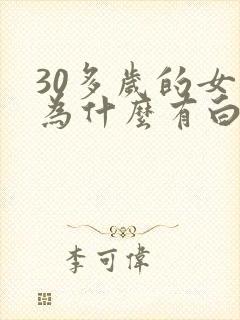 30多歲的女
為什麼有白
李可偉